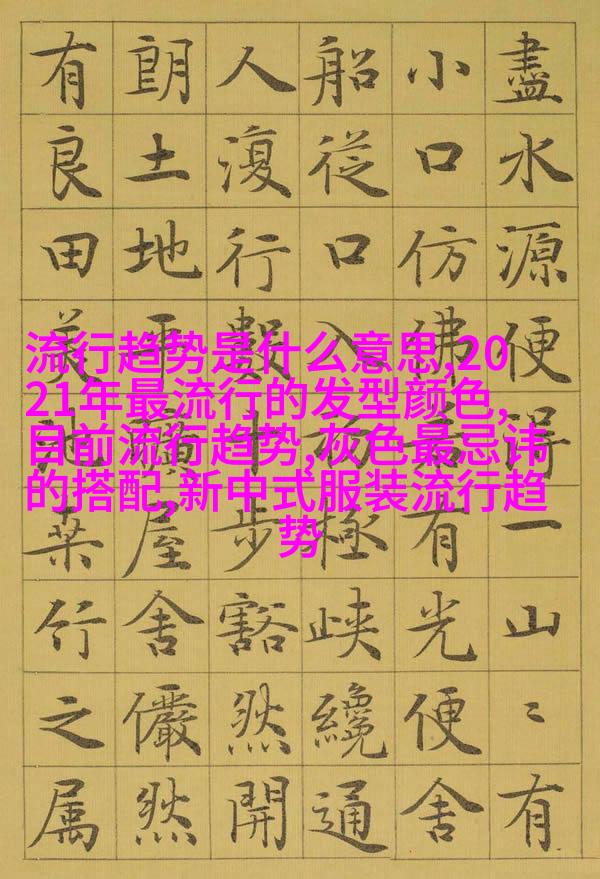 盡水源便得一山〻有
小口仿佛若有光便舍
船從口入初極峽纔通
人復行數十步豁然開
朗土地平曠屋舍儼然
有良田美池桑竹之属
流行趋势是什么意思,20
21年最流行的发型颜色,
目前流行趋势,灰色最忌讳
的搭配,新中式服装流行趋
势